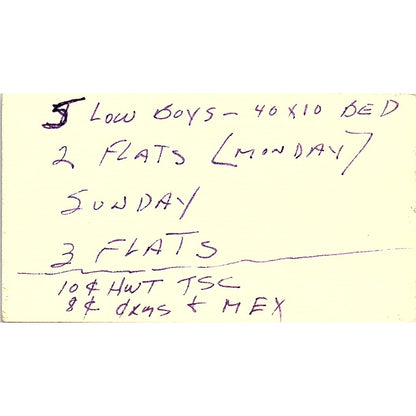 5 LOW BOYS - 40X10 BED
2 FLATS (MONDAY)
SUNDAY
3 FLATS
10¢ HWT TSC
8¢ dxms + MEX